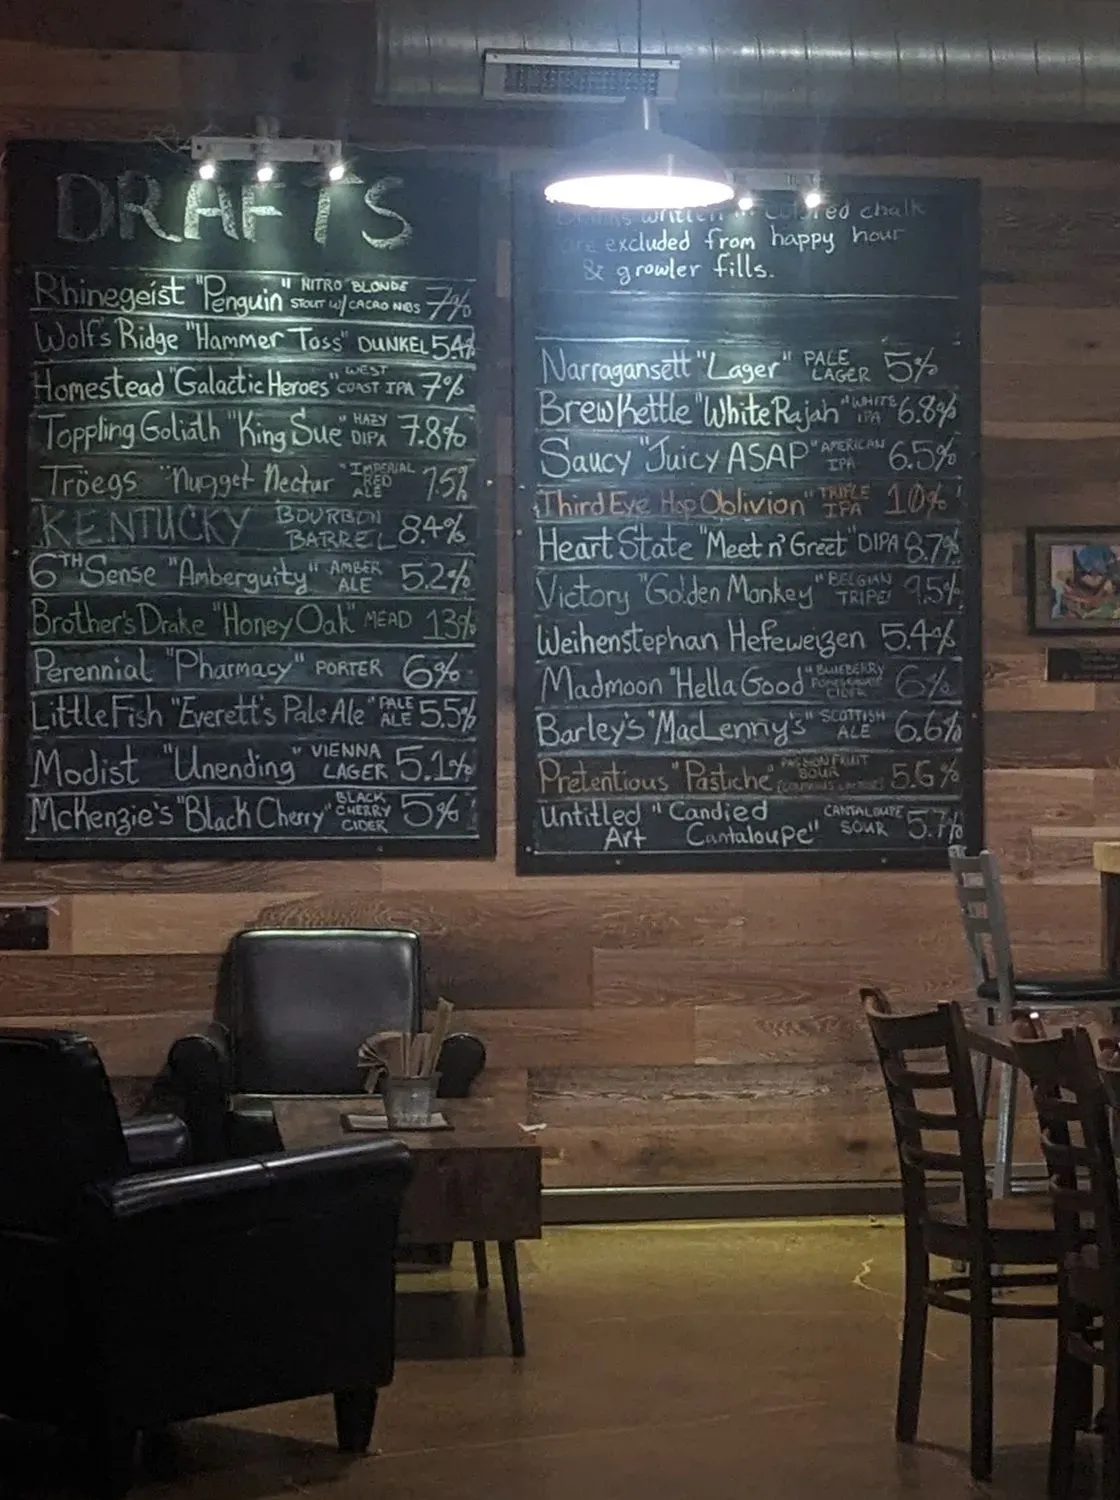 DRAFTS
Rhinegeist "Penguin" NITRO BLONDE STOUT W/CACAO NIBS 7%
Wolf's Ridge "Hammer Toss" DUNKEL 5.4%
Homestead "Galactic Heroes" WEST COAST IPA 7%
Toppling Goliath "King Sue" HAZY DIPA 7.8%
Tröegs "Nugget Nectar" IMPERIAL RED ALE 7.5%
KENTUCKY BOURBON BARREL 8.4%
6TH Sense "Amberguity" AMBER ALE 5.2%
Brother's Drake "Honey Oak" MEAD 13%
Perennial "Pharmacy" PORTER 6%
Little Fish "Everett's Pale Ale" PALE ALE 5.5%
Modist "Unending" VIENNA LAGER 5.1%
McKenzie's "Black Cherry" BLACK CHERRY CIDER 5%
Drinks written in colored chalk
are excluded from happy hour
& growler fills.
Narragansett "Lager" PALE LAGER 5%
Brew Kettle "White Rajah" WHITE IPA 6.8%
Saucy "Juicy ASAP" AMERICAN IPA 6.5%
Third Eye Hop Oblivion" TRIPLE IPA 10%
Heart State "Meet n' Greet" DIPA 8.7%
Victory "Golden Monkey" BELGIAN TRIPEL 9.5%
Weihenstephan Hefeweizen 5.4%
Madmoon "Hella Good" BLUEBERRY CIDER 6%
Barley's "MacLenny's" SCOTTISH ALE 6.6%
Pretentious "Pastiche" PASSIONFRUIT SOUR 5.6%
Untitled Art "Candied Cantaloupe" CANTALOUPE SOUR 5.7%